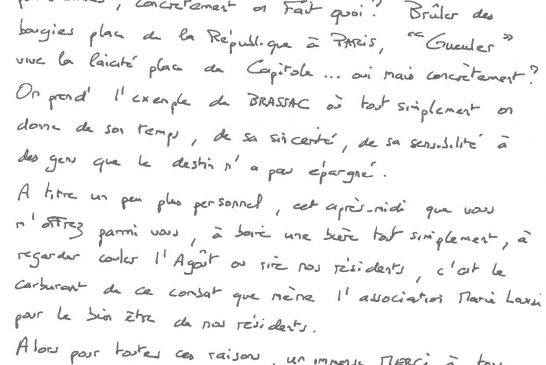 , concrètement on Fait quoi ? Brûler des
bougies place de la République à PARIS, "Gueuler"
vive la laïcité place du Capitole... oui mais concrètement ?
On prend l'exemple de BRASSAC où tout simplement on
donne de son temps, de sa sincérité, de sa sensibilité à
des gens que le destin n'a pas épargné.
A titre un peu plus personnel, cet après-midi que vous
m'offrez parmi vous, à boire une bière tout simplement, à
regarder couler l'Agoût ou rire nos résidents, c'est le
carburant de ce combat que mène l'association Marie
pour le bien être de nos résidents.
Alors pour toutes ces raisons, un immense MERCI à